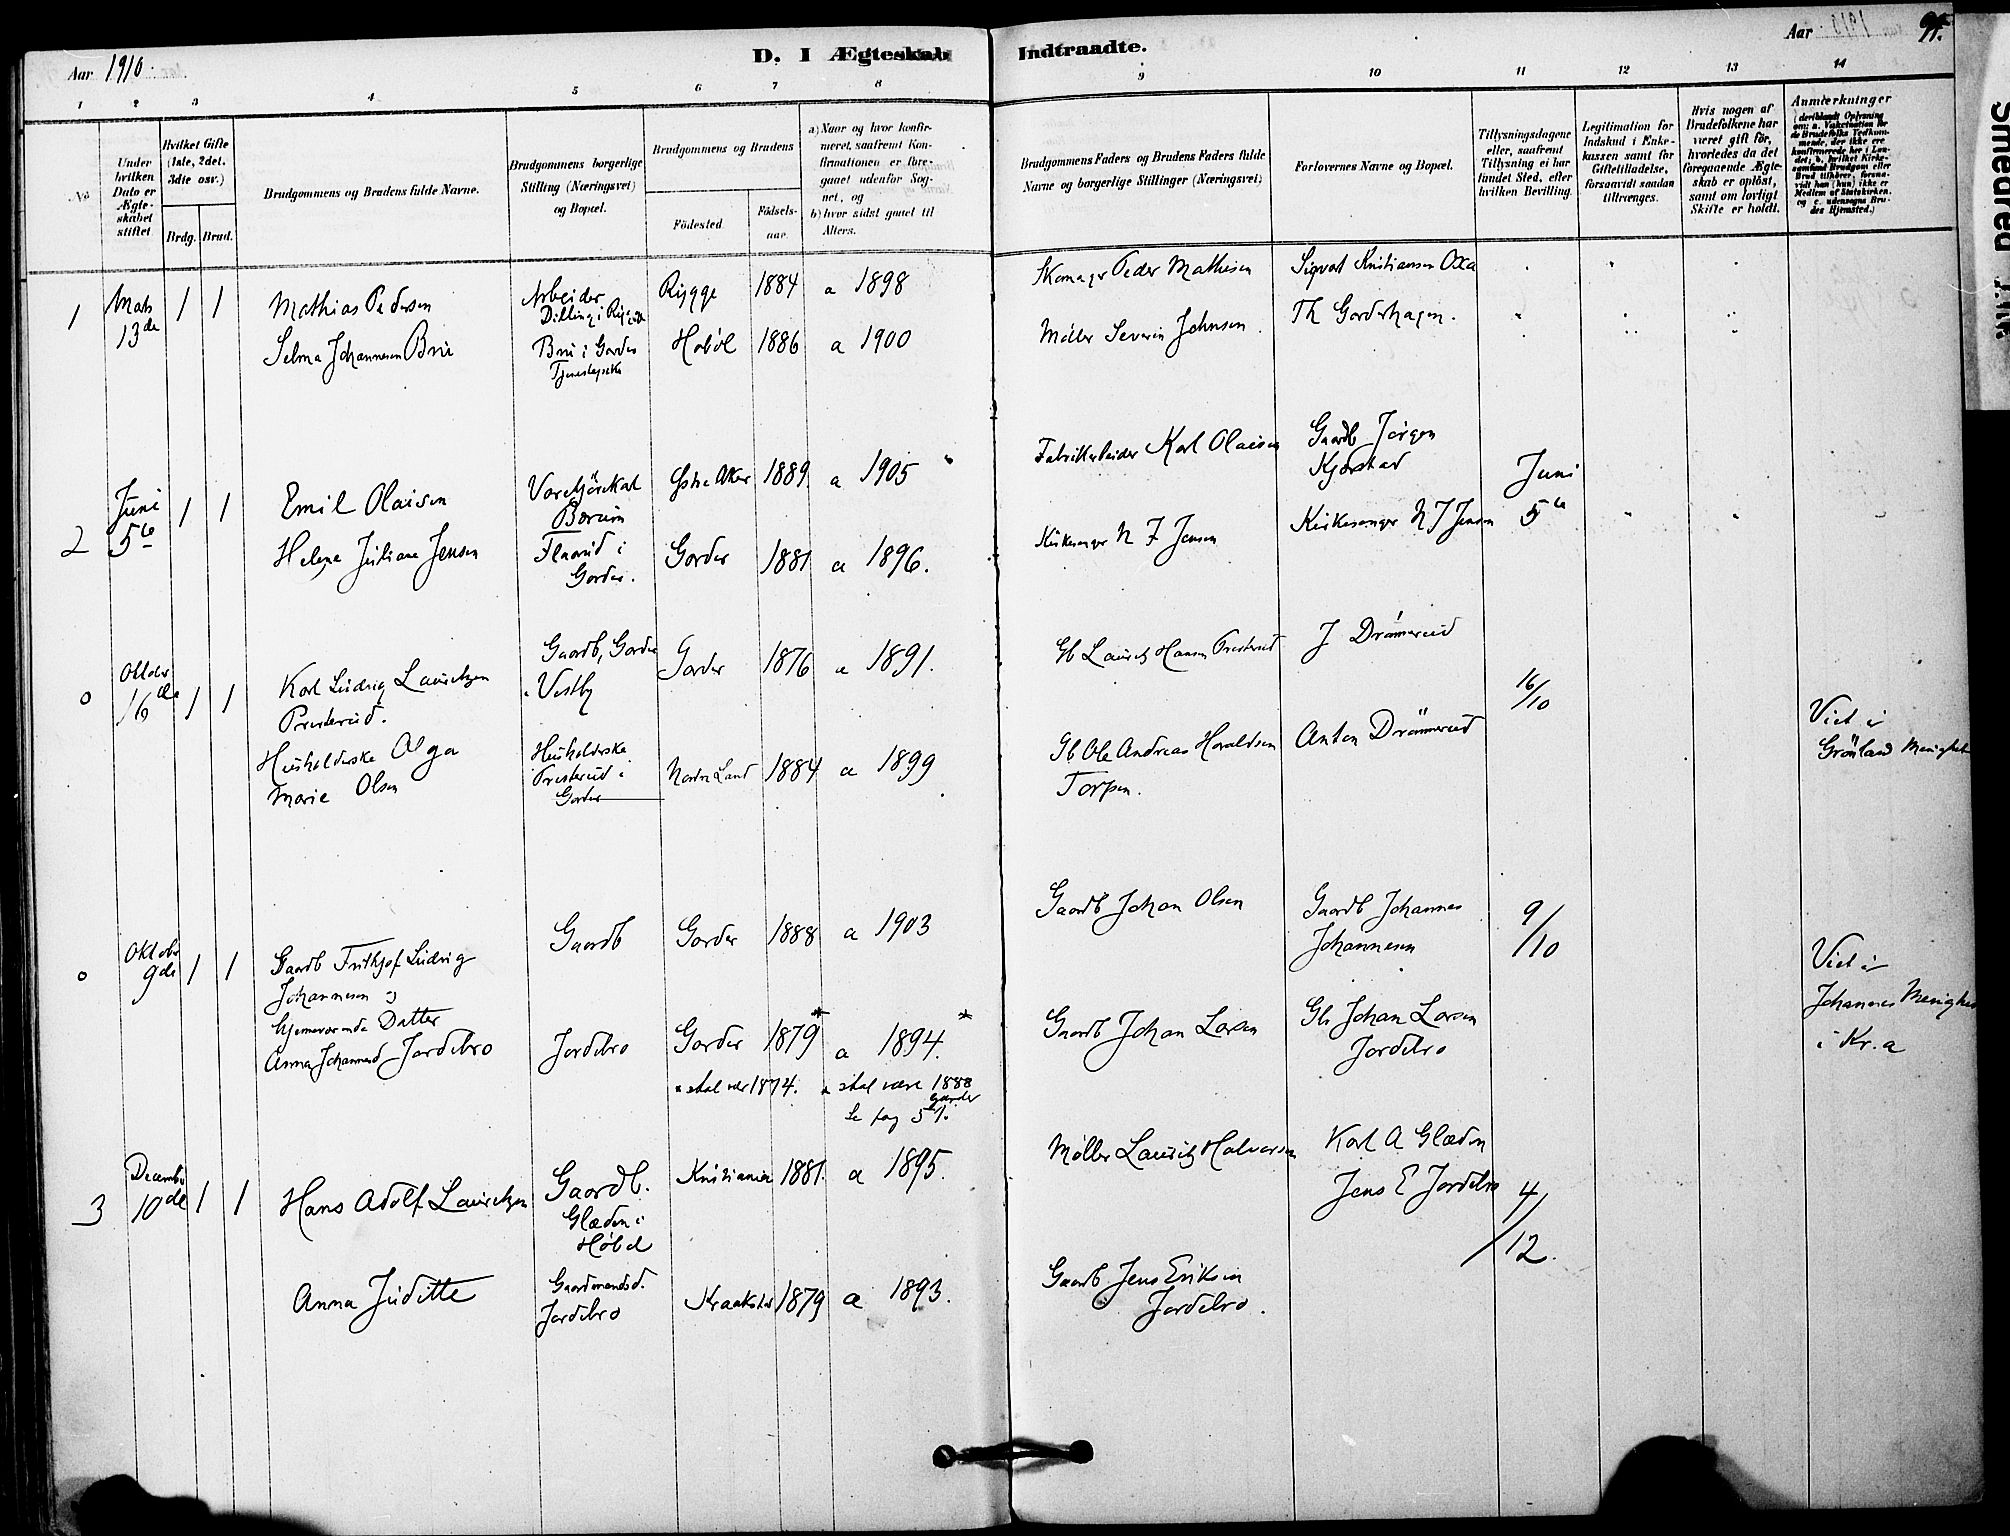 Aar 1910
D. I Ægteskab Indtraadte.
Aar
95.
1 2 3 4 5 6 7 8 9 10 11 12 13 14
No
Under hvilken Dato er Ægteskabet stiftet
Hvilket Gifte (1ste, 2det, 3die osv.)
Brdg. Brud.
Brudgommens og Brudens fulde Navne.
Brudgommens borgerlige Stilling (Næringsvei) og Bopæl.
Brudgommens og Brudens
Födested
Födsels-aar.
a) Naar og hvor konfirmeret, saafremt Konfirmationen er foregaaet udenfor Sognet, og
b) hvor sidst gaaet til Alters.
Brudgommens Faders og Brudens Faders fulde Navne og borgerlige Stillinger (Næringsvei)
Forlovernes Navne og Bopæl.
Tillysningsdagene eller, saafremt Tillysning ei har fundet Sted, efter hvilken Bevilling.
Legitimation for Indskud i Enkekassen samt for Giftetilladelse, forsaavidt saadan tiltrænges.
Hvis nogen af Brudefolkene har været gift för, hvorledes da det foregaaende Ægteskab er oplöst, samt om lovligt Skifte er holdt.
Anmærkninger
1 Mats 13de 1 1
Mathias Pedersen
Arbeider Dilling i Rygge
Rygge 1884 a 1898
Skomager Peder Mathisen
Sigvat Kristiansen Oxa
Selma Johannesen Brü
Brü i Gorder
Hoböl 1886 a 1900
Möller Severin Johnsen.
Th Gorderhagen.
2 Juni 5te 1 1
Emil Olaisen
Bærum
Östre Aker 1889 a 1905
Fabrikarbeider Karl Olaisen
Gaardb Jörgen Kjorstad
Juni 5te
Helene Juliane Jensen
i Gorder.
Gorder 1881 a 1896.
Kirkesanger N J Jensen
Kirkesanger N J Jensen
0 Oktober 16de 1 1
Karl Ludvig Lauritzen Presterud.
Gaardb, Gorder i Vestby
Gorder 1876 a 1891.
Gb Lauritz Hansen Presterud
J Drömerud
16/10
Husholderske Olga Marie Olsen
Husholderske Presterud i Gorder
Nordre Land 1884 a 1899
Gb Ole Andreas Haraldsen Torpen.
Anton Drömmerud
Viet i Grönland Menighet
0 Oktober 9de 1 1
Gaardb Frithjof Ludvig Johannesen og
Gaardb
Gorder 1888 a 1903
Gaardb Johan Olsen
Gaardb Johannes Johannesen
9/10
hjemmeværende Datter
Anna Johannesd Jordebro
Jordebro
Gorder 1879* a 1894.*
* skal være 1874. * skal være 1888 Gorder
Se pag 57.
Gaardb Johan Larsen
Gb Johan Larsen Jordebro
Viet i Johannes Menighet i Kr.a
3 December 10de 1 1
Hans Adolf Lauritzen
Gaardb. Glæden i Höböl
Kristiania 1881. a 1895.
Möller Lauritz Halvorsen
Karl A Glæden
Jens E Jordebro
4/12.
Anna Juditte
Gaardmandsd. Jordebro
Kraakstad 1879 a 1893.
Gaardb Jens Eriksen Jordebro.